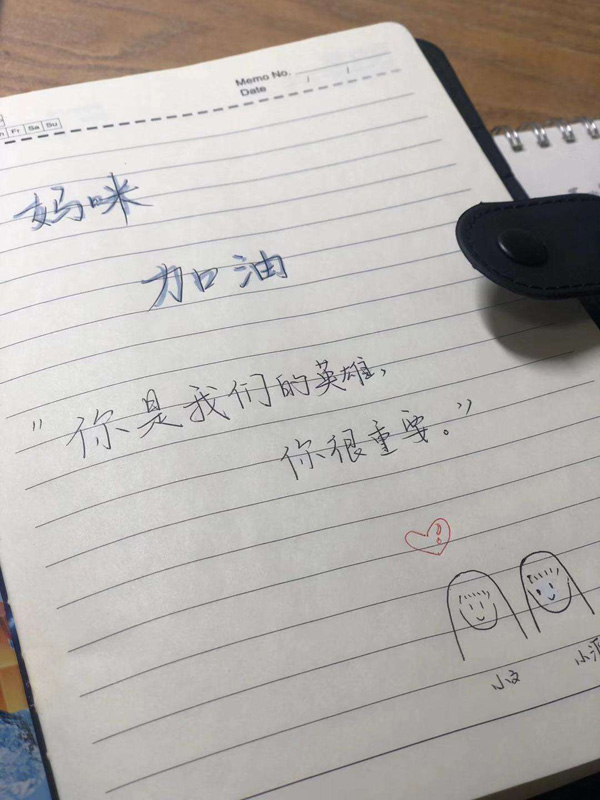 Memo No.
Date / /
Fr Sa Su
妈咪
加油
“你是我们的英雄,
你很重要。”
小文